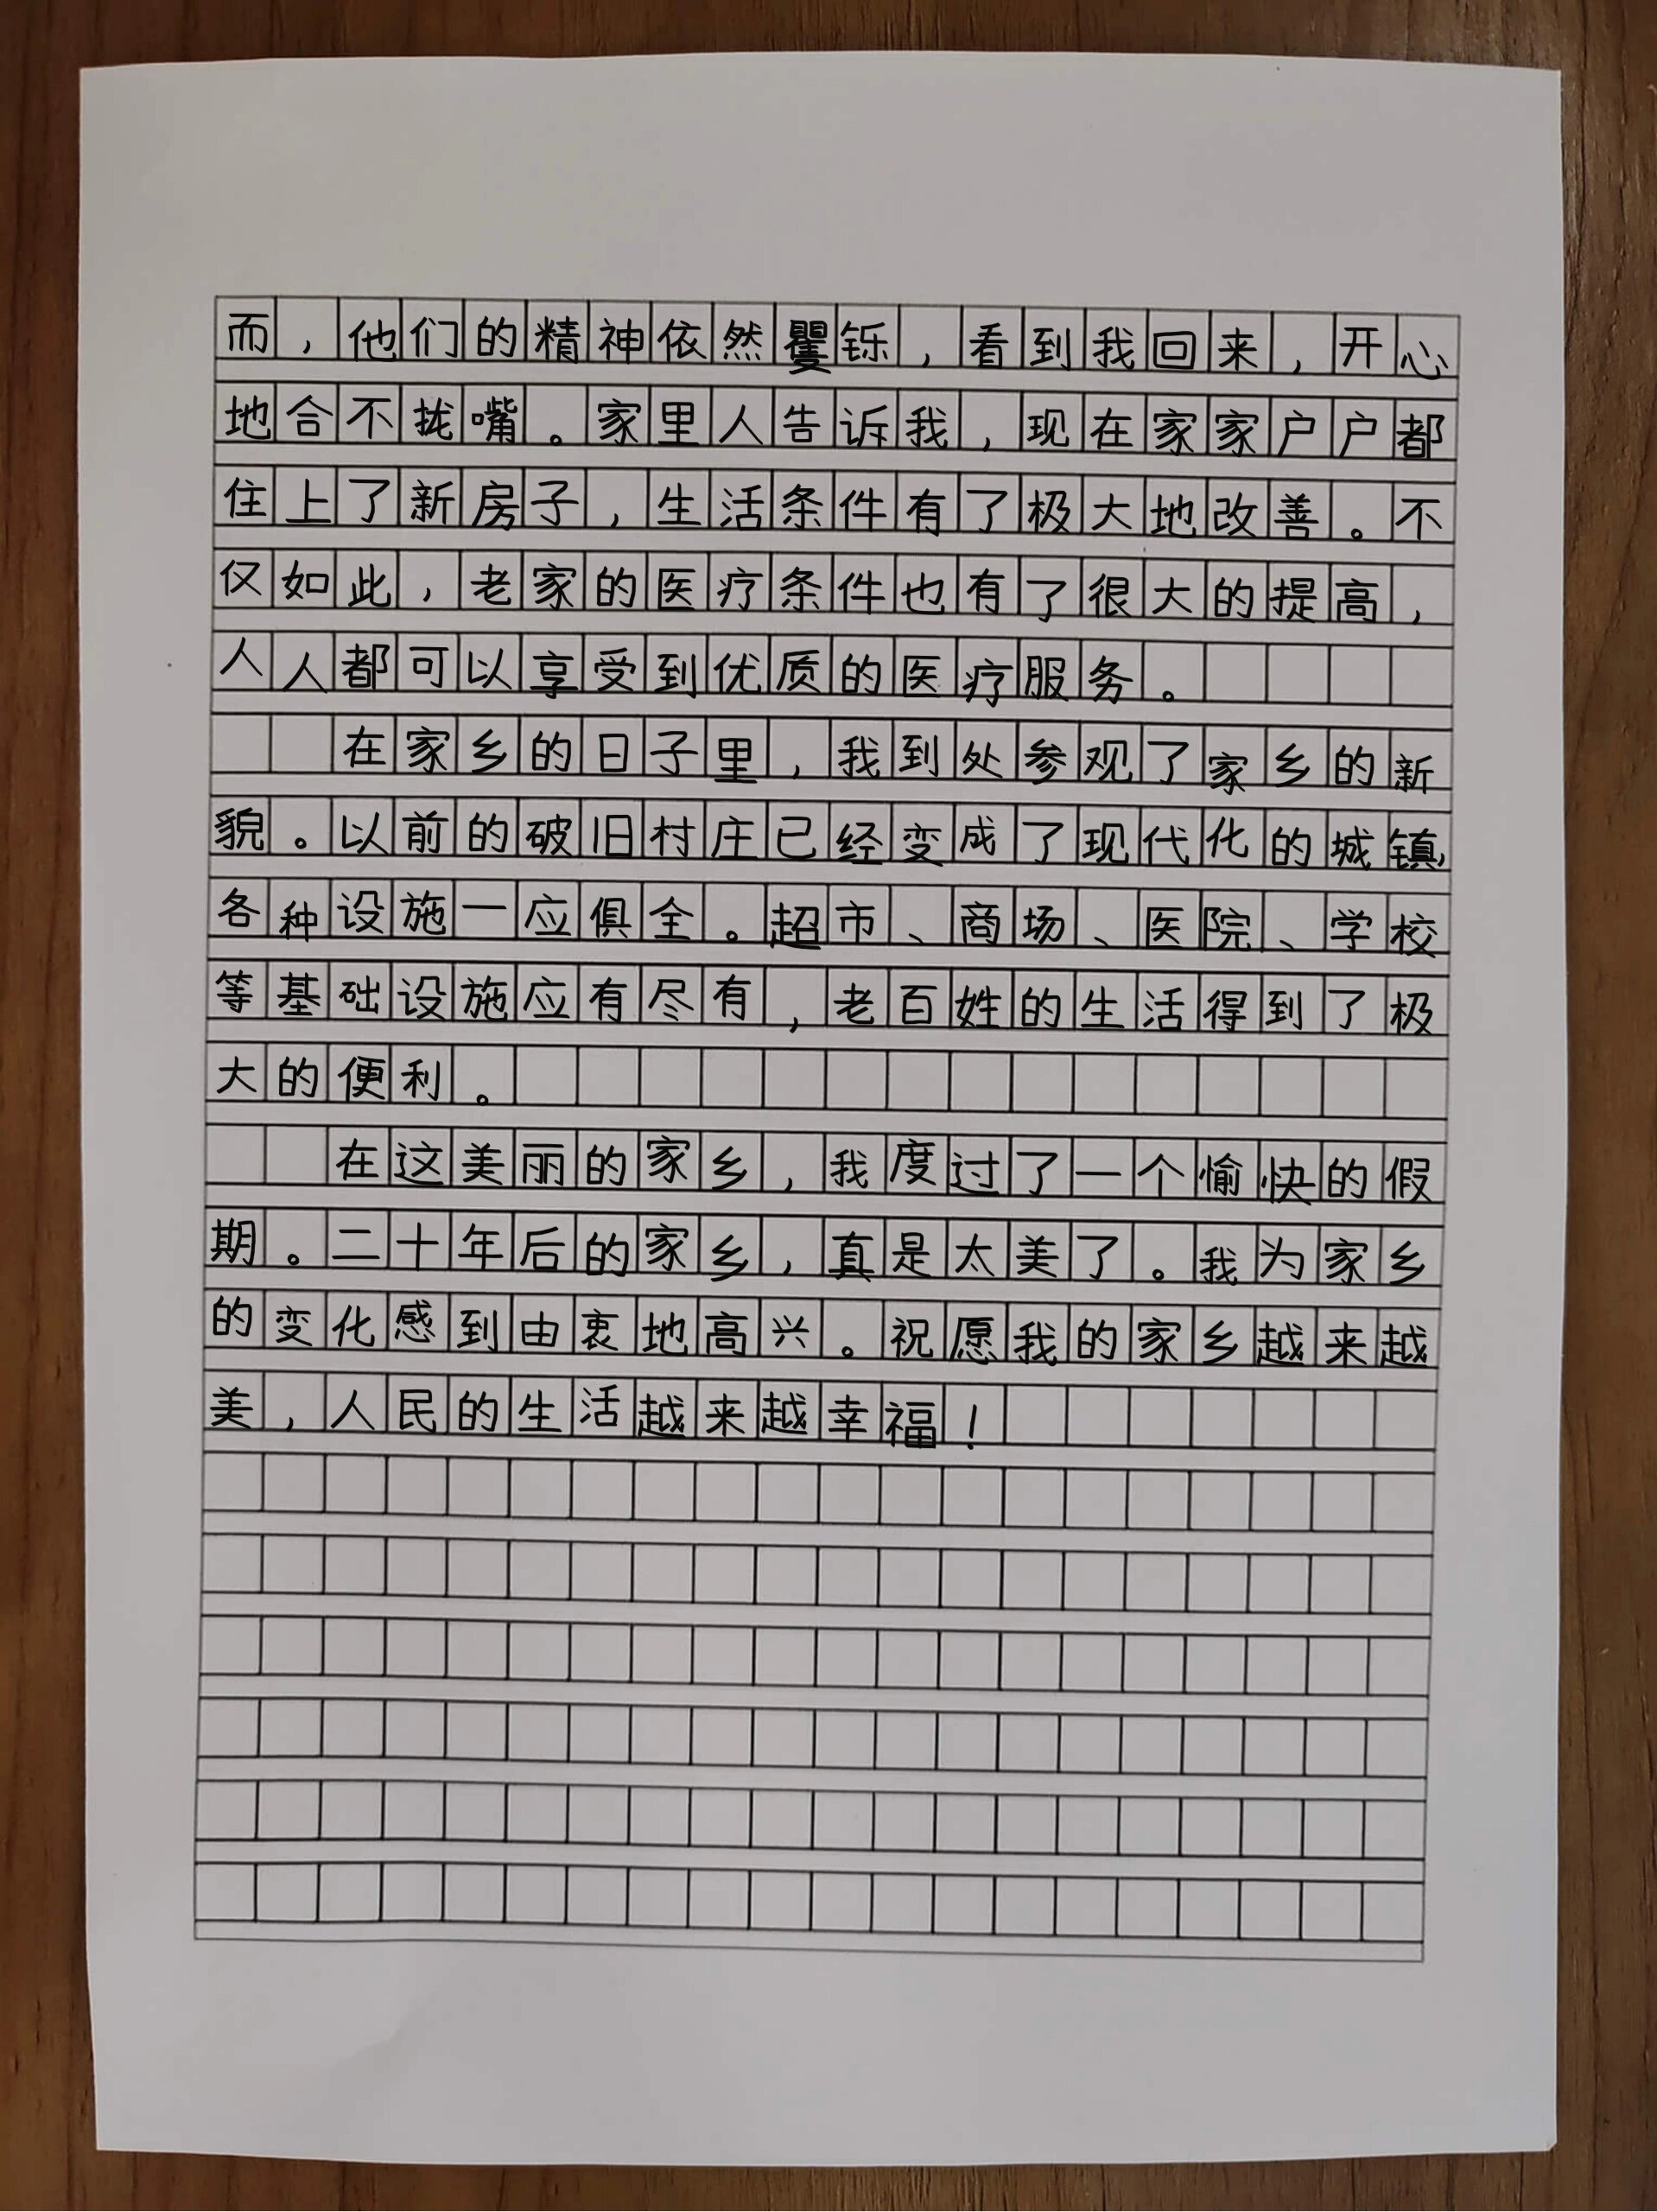 而，他们的精神依然矍铄，看到我回来，开心
地合不拢嘴。家里人告诉我，现在家家户户都
住上了新房子，生活条件有了极大地改善。不
仅如此，老家的医疗条件也有了很大的提高，
人人都可以享受到优质的医疗服务。
在家乡的日子里，我到处参观了家乡的新
貌。以前的破旧村庄已经变成了现代化的城镇，
各种设施一应俱全。超市、商场、医院、学校
等基础设施应有尽有，老百姓的生活得到了极
大的便利。
在这美丽的家乡，我度过了一个愉快的假
期。二十年后的家乡，真是太美了。我为家乡
的变化感到由衷地高兴。祝愿我的家乡越来越
美，人民的生活越来越幸福！